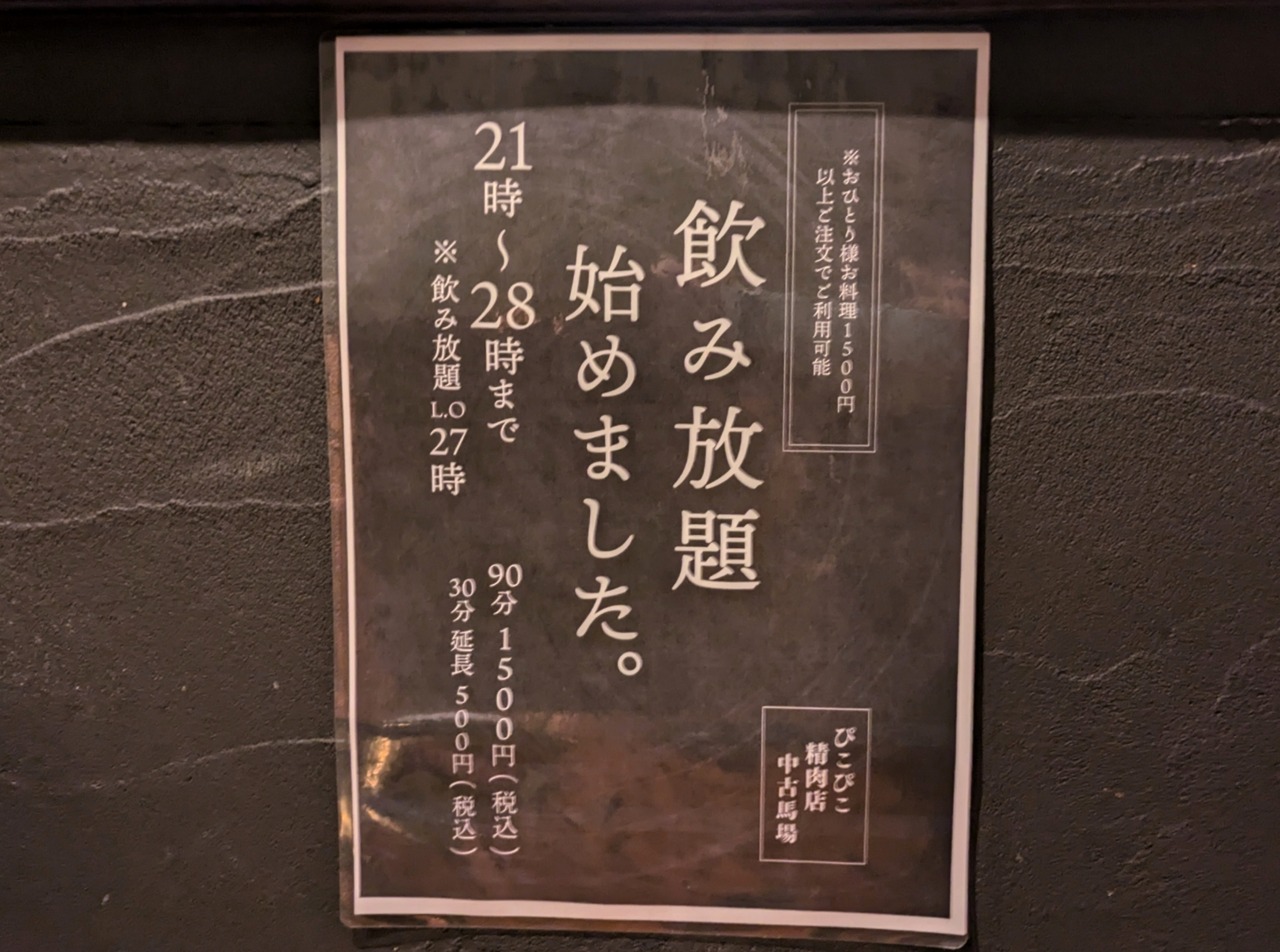 ※おひとり様お料理1500円
以上ご注文でご利用可能
飲み放題
始めました。
21時～28時まで
※飲み放題L.O27時
90分 1500円(税込)
30分延長 500円(税込)
ぴこぴこ
精肉店
中古馬場